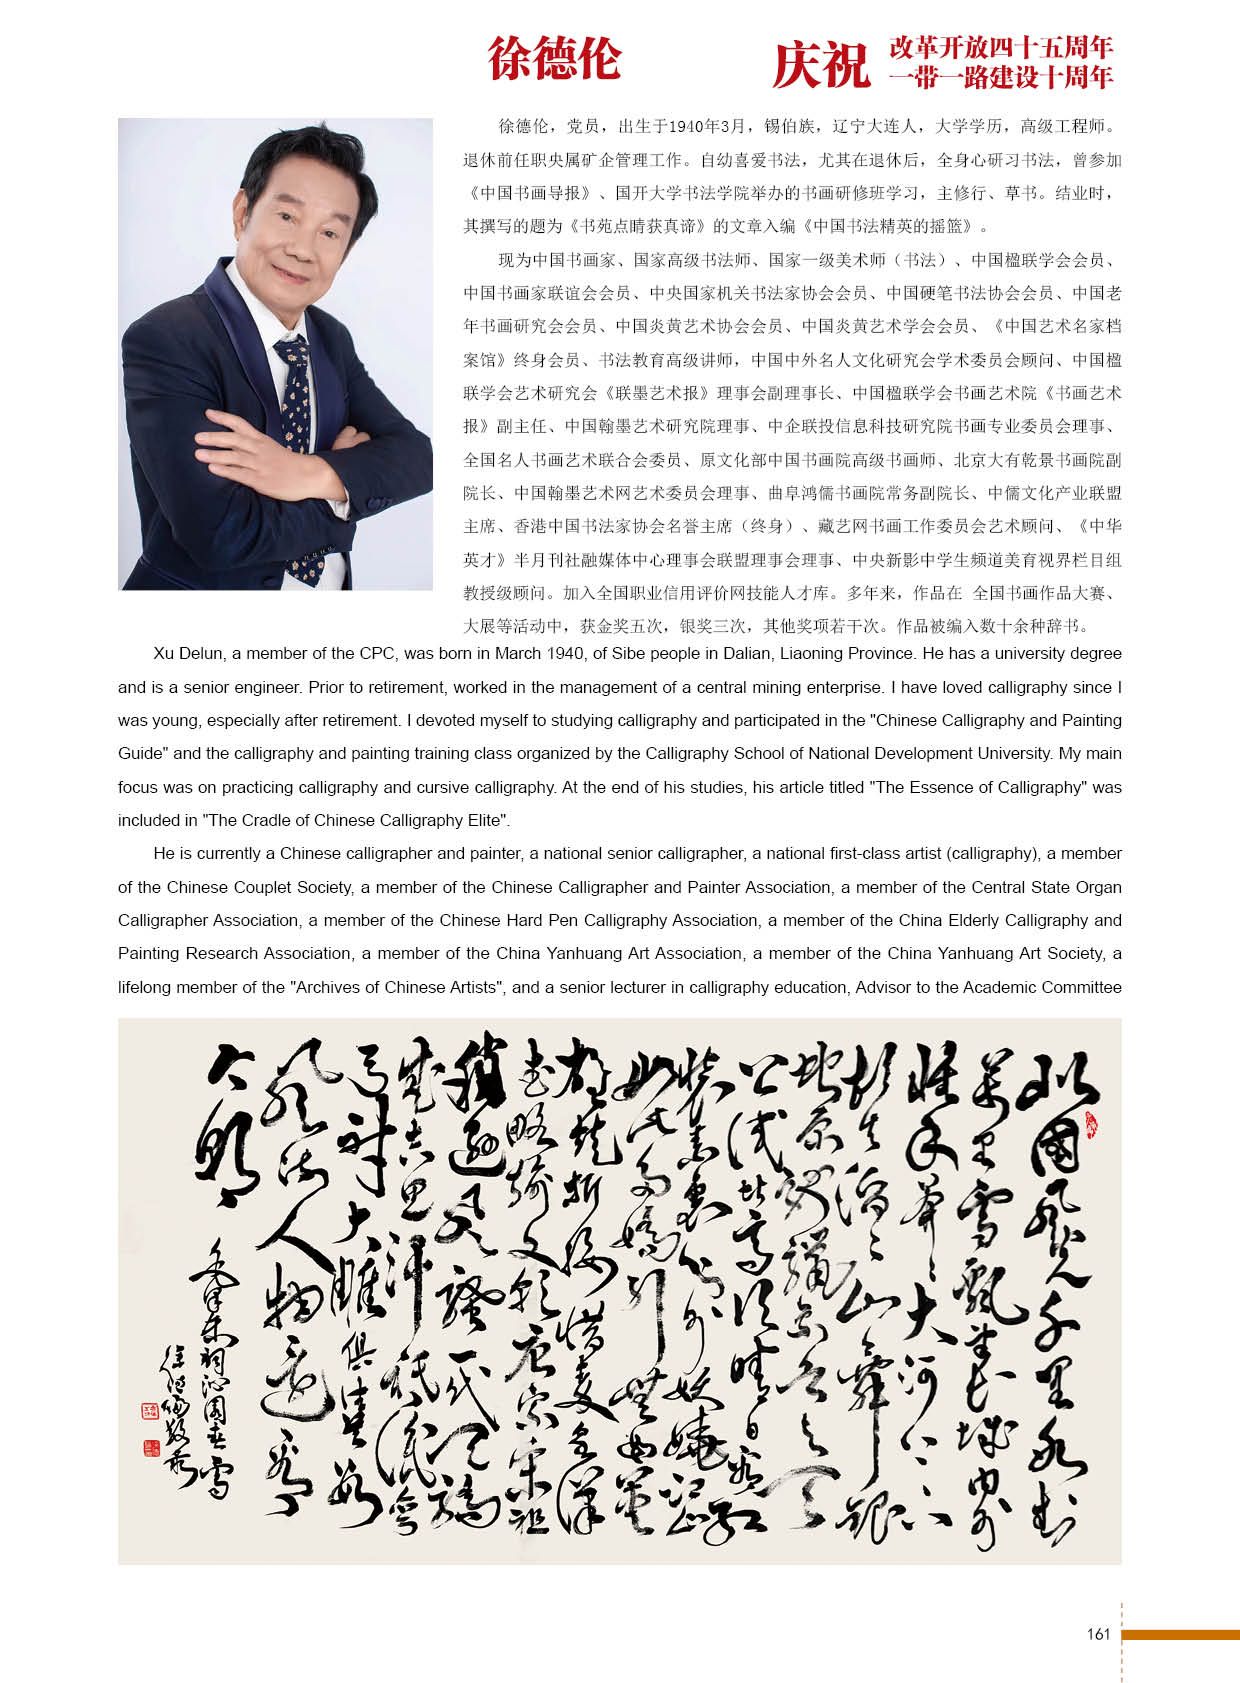 徐德伦
庆祝
改革开放四十五周年
一带一路建设十周年
徐德伦，党员，出生于1940年3月，锡伯族，辽宁大连人，大学学历，高级工程师。
退休前任职央属矿企管理工作。自幼喜爱书法，尤其在退休后，全身心研习书法，曾参加
《中国书画导报》、国开大学书法学院举办的书画研修班学习，主修行、草书。结业时，
其撰写的题为《书苑点睛获真谛》的文章入编《中国书法精英的摇篮》。
现为中国书画家、国家高级书法师、国家一级美术师（书法）、中国楹联学会会员、
中国书画家联谊会会员、中央国家机关书法家协会会员、中国硬笔书法协会会员、中国老
年书画研究会会员、中国炎黄艺术协会会员、中国炎黄艺术学会会员、《中国艺术名家档
案馆》终身会员、书法教育高级讲师，中国中外名人文化研究会学术委员会顾问、中国楹
联学会艺术研究会《联墨艺术报》理事会副理事长、中国楹联学会书画艺术院《书画艺术
报》副主任、中国翰墨艺术研究院理事、中企联投信息科技研究院书画专业委员会理事、
全国名人书画艺术联合会委员、原文化部中国书画院高级书画师、北京大有乾景书画院副
院长、中国翰墨艺术网艺术委员会理事、曲阜鸿儒书画院常务副院长、中儒文化产业联盟
主席、香港中国书法家协会名誉主席（终身）、藏艺网书画工作委员会艺术顾问、《中华
英才》半月刊社融媒体中心理事会联盟理事会理事、中央新影中学生频道美育视界栏目组
教授级顾问。加入全国职业信用评价网技能人才库。多年来，作品在 全国书画作品大赛、
大展等活动中，获金奖五次，银奖三次，其他奖项若干次。作品被编入数十余种辞书。
Xu Delun, a member of the CPC, was born in March 1940, of Sibe people in Dalian, Liaoning Province. He has a university degree
and is a senior engineer. Prior to retirement, worked in the management of a central mining enterprise. I have loved calligraphy since I
was young, especially after retirement. I devoted myself to studying calligraphy and participated in the "Chinese Calligraphy and Painting
Guide" and the calligraphy and painting training class organized by the Calligraphy School of National Development University. My main
focus was on practicing calligraphy and cursive calligraphy. At the end of his studies, his article titled "The Essence of Calligraphy" was
included in "The Cradle of Chinese Calligraphy Elite".
He is currently a Chinese calligrapher and painter, a national senior calligrapher, a national first-class artist (calligraphy), a member
of the Chinese Couplet Society, a member of the Chinese Calligrapher and Painter Association, a member of the Central State Organ
Calligrapher Association, a member of the Chinese Hard Pen Calligraphy Association, a member of the China Elderly Calligraphy and
Painting Research Association, a member of the China Yanhuang Art Association, a member of the China Yanhuang Art Society, a
lifelong member of the "Archives of Chinese Artists", and a senior lecturer in calligraphy education, Advisor to the Academic Committee
北國風光千里冰封
萬里雪飄望長城内外
惟余莽〻大河上下
頓失滔〻山舞銀
蛇原馳蠟象欲与天
公試比高須晴日看红
裝素裹分外妖嬈江山
如此多嬌引無數英
雄競折腰惜秦皇漢
武略輸文采唐宗宋祖
稍遜風騷一代天驕
成吉思汗衹識彎
弓射大雕俱往矣數
風流人物還看
今朝
毛澤東詞沁園春雪
徐德倫敬录
161